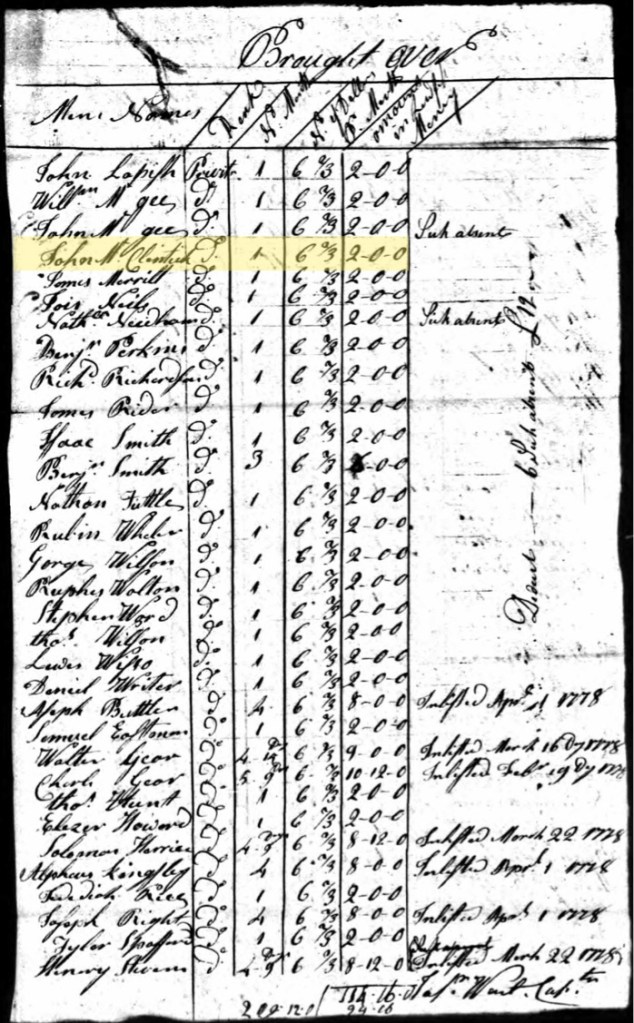 Brought over
Mens Names Rank No. Month No. of Dollars Pr. Month amount in Money
John Lapish Privt. 1 6 2/3 2-0-0
Willm. Mc gee Do. 1 6 2/3 2-0-0
John Mc gee Do. 1 6 2/3 2-0-0 Sick absent
John Mc Clintick Do. 1 6 2/3 2-0-0
James Merrill Do. 1 6 2/3 2-0-0
Do. 1 6 2/3 2-0-0
Nathl. Needham Do. 1 6 2/3 2-0-0 Sick absent
Benjn. Perkins Do. 1 6 2/3 2-0-0
Richd. Richardson Do. 1 6 2/3 2-0-0
James Rider Do. 1 6 2/3 2-0-0
Isaac Smith Do. 1 6 2/3 2-0-0
Benjn. Smith Do. 3 6 2/3 6-0-0
Nathan Tuttle Do. 1 6 2/3 2-0-0
Rubin Wheler Do. 1 6 2/3 2-0-0
Gorge Wilson Do. 1 6 2/3 2-0-0
Ruphes Walton Do. 1 6 2/3 2-0-0
Stephen Word Do. 1 6 2/3 2-0-0
thos. Willson Do. 1 6 2/3 2-0-0
Lewis Do. 1 6 2/3 2-0-0
Daniel Writer Do. 1 6 2/3 2-0-0
Aseph Buttler Do. 4 6 2/3 8-0-0 Inlisted Aprl. 1 1778
Semuel Eastman Do. 1 6 2/3 2-0-0
Walter Gear Do. 4 6 2/3 9-0-0 Inlisted March 16 Dy 1778
Charls Gear Do. 5 6 2/3 10-12-0 Inlisted Febr. 19 Dy 1778
thos. Hunt Do. 1 6 2/3 2-0-0
Elezer Howard Do. 1 6 2/3 2-0-0
Solomon Do. 4 6 2/3 8-12-0 Inlisted March 22 1778
Alpheus Kingsley Do. 4 6 2/3 8-0-0 Inlisted Aprl. 1 1778
Jedediah Rice Do. 1 6 2/3 2-0-0
Joseph Right Do. 4 6 2/3 8-0-0 Inlisted Aprl. 1 1778
Tyler Spafford Do. 1 6 2/3 2-0-0
Henry Stevens Do. 4 6 2/3 8-12-0 Inlisted March 22 1778
114-16-0 Jasn. Wait Captn
209-12-0 94-16
Deduct 6 Sick absents £12